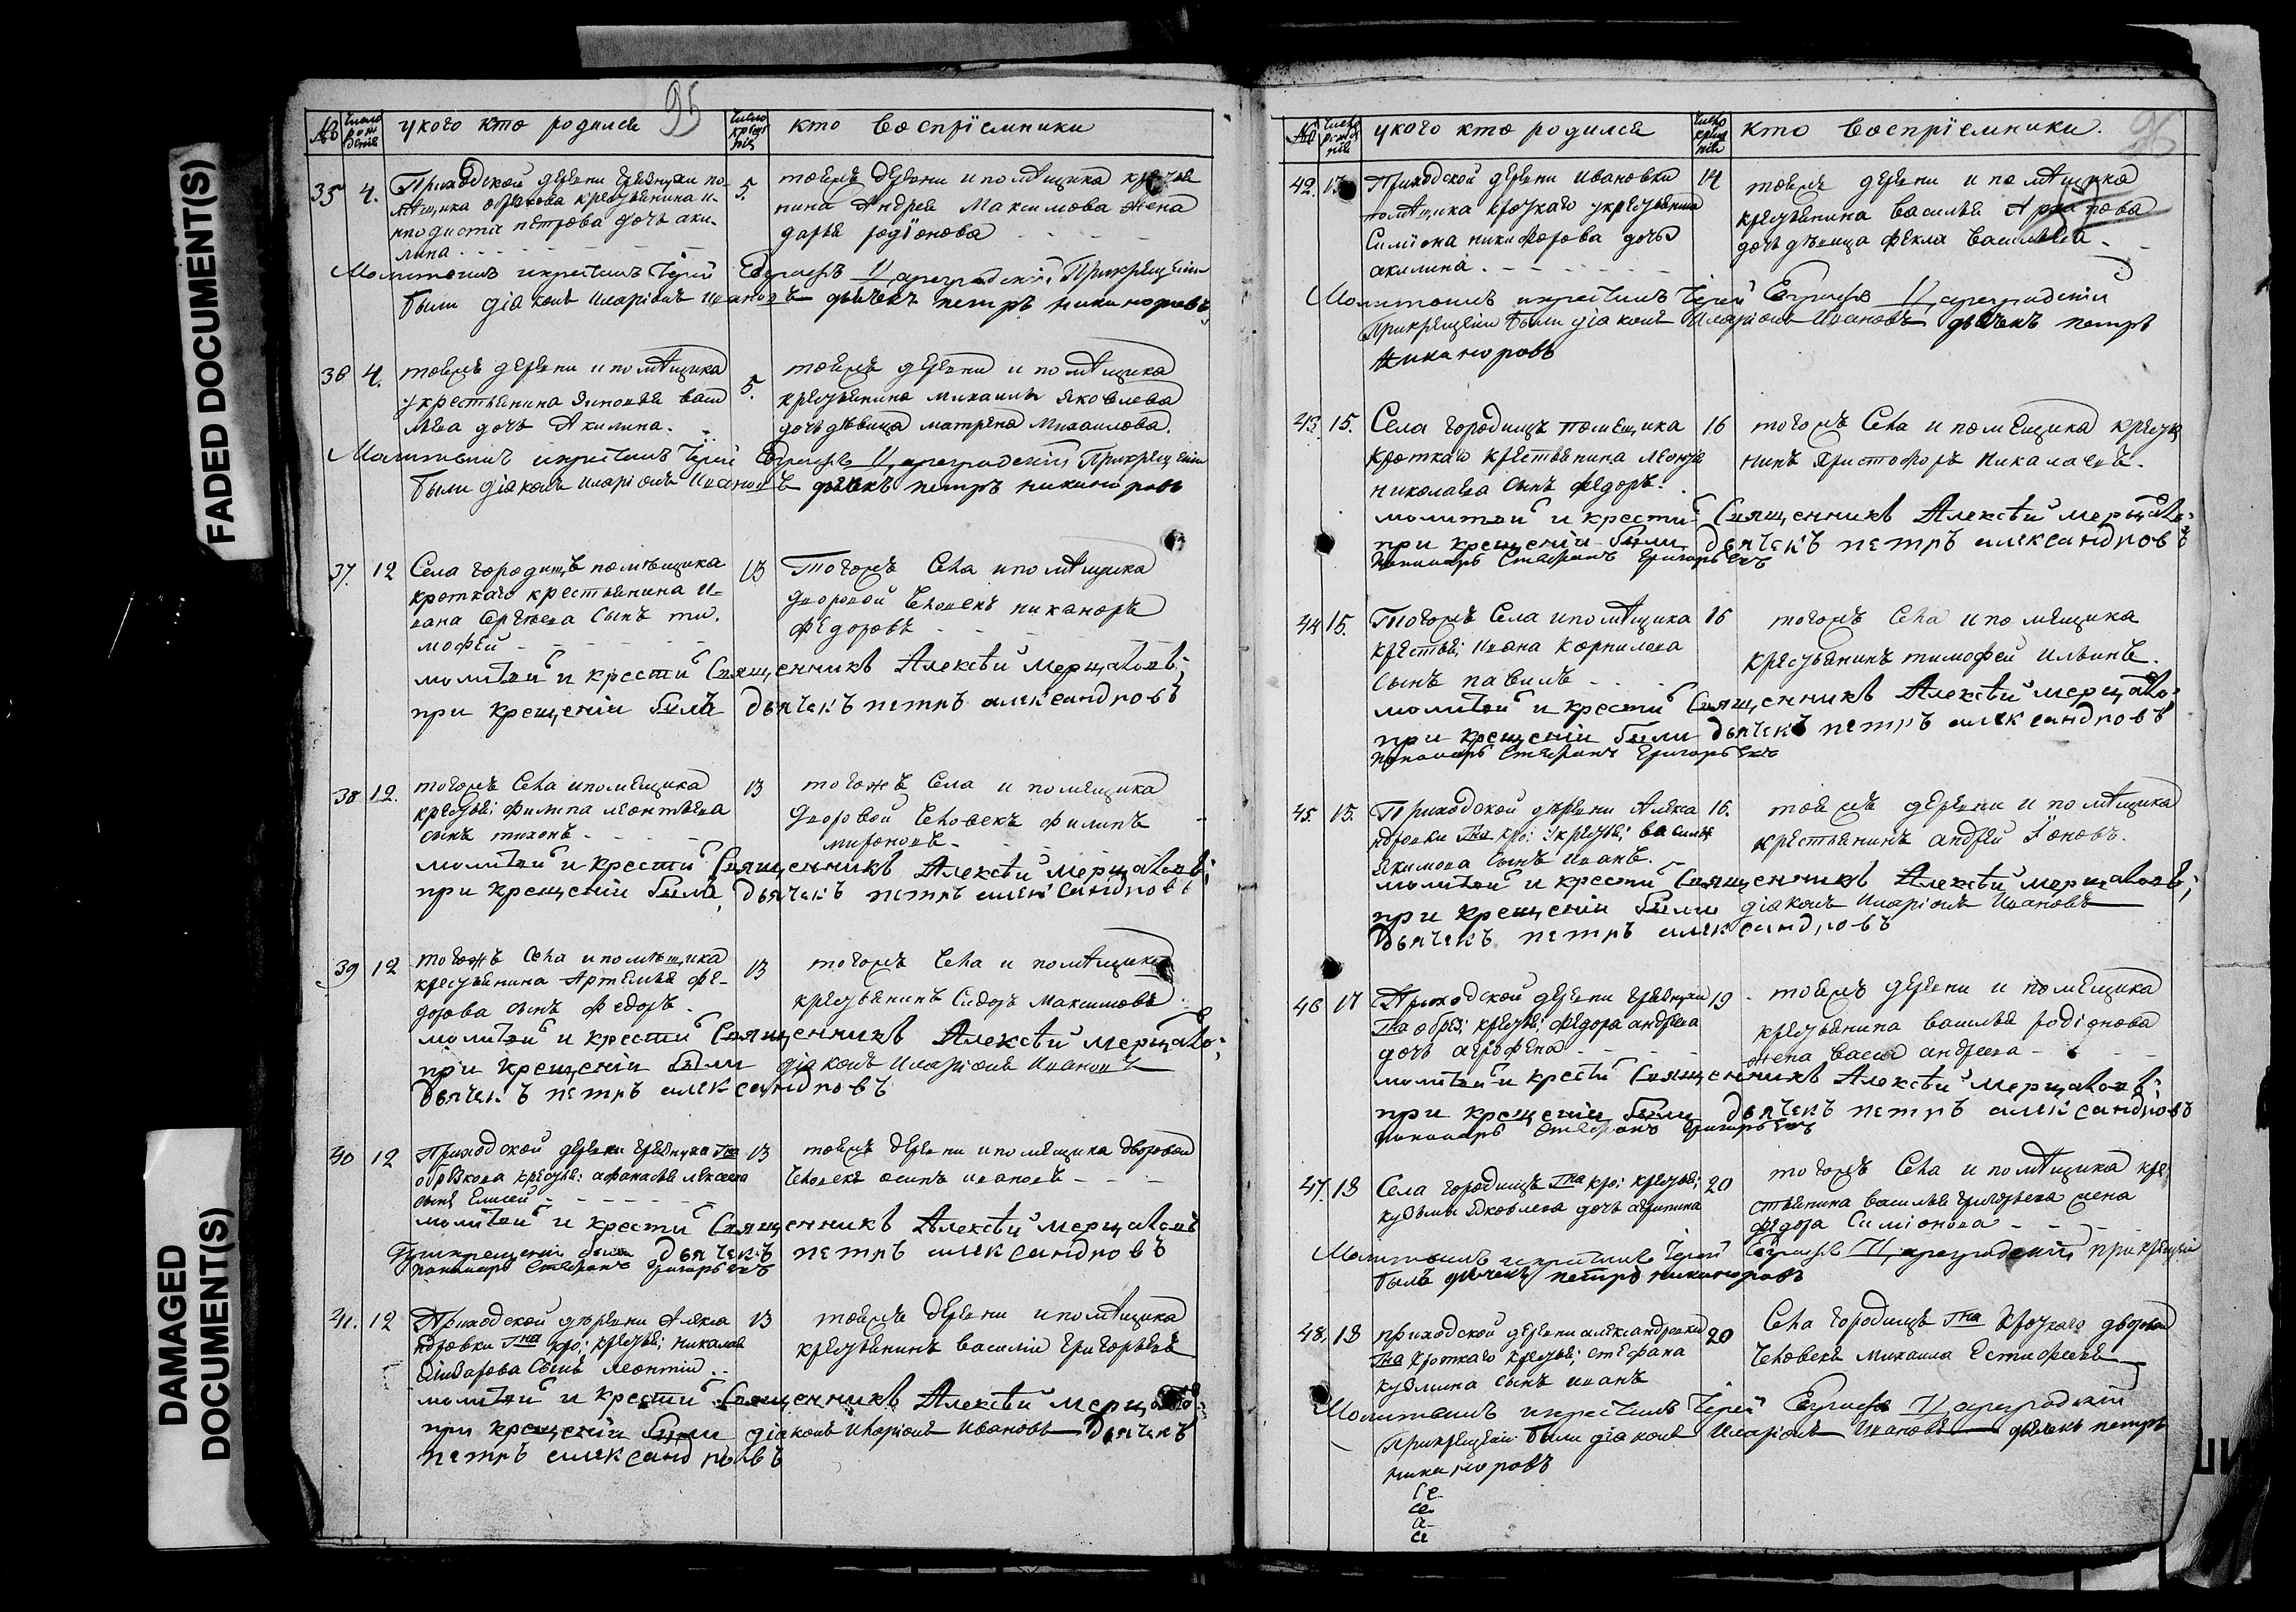 FADED DOCUMENT(S)
DAMAGED
DOCUMENT(S)
95
№
число рож денія
у кого кто родился
число крещенія
кто воспріемники
35 4. Приходской деревни по-
мѣщика обрѣзкова крестьянина и-
петрова дочь аки-
лина
5. тоежъ деревни и помѣщика крестья
нина Андрея Максимова жена
дарья родіонова
Молитвилъ и крестилъ Іерей Цареградскій При крещеніи
были діаконъ иларіонъ ивановъ дьячекъ петръ никаноровъ
36 4. тоежъ деревни и помѣщика
крестьянина Зиновея васи
льева дочь Акилина.
5. тоежъ деревни и помѣщика
крестьянина михаилы яковлева
дочь дѣвица матрена Михаилова.
Молитвилъ и крестилъ Іерей Цареградскій При крещеніи
были діаконъ иларіонъ ивановъ дьячекъ петръ никаноровъ
37. 12 Села городищъ помѣщика
кроткаго крестьянина и-
вана Сергѣева сынъ ти-
мофей
13 Тогожъ Села и помѣщика
дворовой человекъ никаноръ
федоровъ
молитвилъ и крестилъ Священникъ Алексѣй Мерцаловъ;
при крещеніи былъ дьячекъ петръ александровъ
38 12. тогожъ Села и помещика
крестья: филипа леонтьева
сынъ тихонъ
13 тогожъ Села и помещика
дворовой человекъ филипъ
мироновъ
молитвилъ и крестилъ Священникъ Алексѣй Мерцаловъ;
при крещеніи былъ дьячекъ петръ александровъ
39 12 тогожъ Села и помѣщика
крестьянина Артемья фе-
дорова сынъ Федоръ
13 тогожъ Села и помѣщика
крестьянинъ Сидоръ Максимовъ
молитвилъ и крестилъ Священникъ Алексѣй Мерцало:
при крещеніи были діаконъ Иларіонъ Ивановъ
дьячекъ петръ александровъ
40 12 Приходской деревни Гна
обрѣзкова крестья: афанасья алексеева
сынъ Елисей
13 тоежъ деревни и помещика дворовой
человекъ осипъ ивановъ
молитвилъ и крестилъ Священникъ Алексѣй Мерцаловъ
При крещеніи были дьячекъ петръ александровъ
пономарь Стефанъ Григорьевъ
41. 12 Приходской деревни Алекса
ндровки Гна кро: крестья: николая
сынъ леонтій
13 тоежъ деревни и помѣщика
крестьянинъ василій Григорьевъ
молитвилъ и крестилъ Священникъ Алексѣй
при крещеніи были діаконъ Иларіонъ Ивановъ дьячекъ
петръ александровъ
96
№
число рожде нія
у кого кто родился
число креще нія
кто воспріемники.
42. 13 Приходской деревни ивановки
помѣщика кроткаго у крестьянина
Симіона никифорова дочь
акилина.
14 тоежъ деревни и помѣщика
крестьянина василья Архипова
дочь дѣвица фекла васильева
Молитвилъ и крестилъ Іерей Цареградскій
При крещеніи были діаконъ Иларіонъ Ивановъ дьячекъ петръ
никаноровъ
43. 15. Села городищъ помещика
кроткаго крестьянина леонтья
николаева сынъ федоръ.
16 тогожъ Села и помещика крестья
нинъ Христофоръ Николаевъ.
молитвилъ и крестилъ Священникъ Алексѣй Мерцало:
при крещеніи были дьячекъ петръ александровъ
пономарь Стефанъ Григорьевъ
44 15. Тогожъ Села и помѣщика
крестья; ивана корнилова
сынъ павилъ
16 тогожъ Села и помещика
крестьянинъ тимофей ильинъ.
молитвилъ и крестилъ Священникъ Алексѣй Мерцало:
при крещеніи были дьячекъ петръ александровъ
пономарь Стефанъ Григорьевъ
45. 15. Приходской деревни Алекса
ндровки Гна кро: крестья: василья
якимова сынъ иванъ.
16. тоежъ деревни и помѣщика
крестьянинъ андрей Іоновъ.
молитвилъ и крестилъ Священникъ Алексѣй Мерцаловъ;
при крещеніи были діаконъ Иларіонъ Ивановъ
дьячекъ петръ александровъ
46 17 Приходской деревни
Гна обрез: крестья: федора андреева
дочь агрофена
19 тоежъ деревни и помещика
крестьянина василья родіонова
жена васса андреева
молитвилъ и крестилъ Священникъ Алексѣй Мерцаловъ;
при крещеніи были дьячекъ петръ александровъ
пономарь Стефанъ Григорьевъ
47. 18 Села городищъ Гна кро: крестья:
кузьмы яковлева дочь агрипина
20 тогожъ Села и помѣщика кре
стьянина василья григорьева жена
федора Симіонова
Молитвилъ и крестилъ Іерей Цареградскій при крещеніи
былъ дьячекъ петръ никаноровъ
48. 18 приходской деревни александровки
Гна кроткаго крестья; стефана
кузмина сынъ иванъ
20 Села городищъ Гна кроткаго дворовой
человекъ михаила Естифеевъ
Молитвилъ и крестилъ Іерей Цареградскій
При крещеніи были діаконъ Иларіонъ Ивановъ дьячекъ петръ
никаноровъ